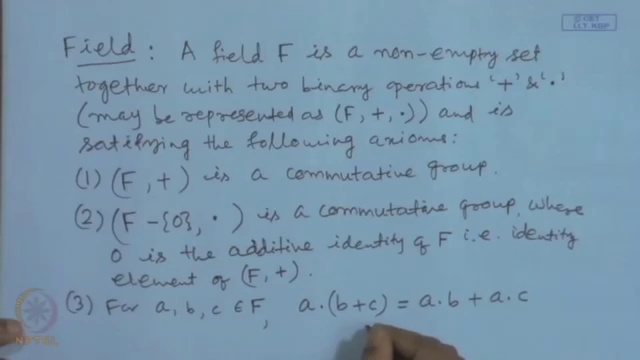 © CET
I.I.T. KGP
Field : A field F is a non-empty set
together with two binary operations '+' & '·'
(may be represented as (F, +, ·)) and is
satisfying the following axioms:
(1) (F, +) is a commutative group.
(2) (F - {0}, ·) is a commutative group, where
0 is the additive identity of F i.e. identity
element of (F, +).
(3) For a, b, c ∈ F, a·(b+c) = a·b + a·c
NPTEL